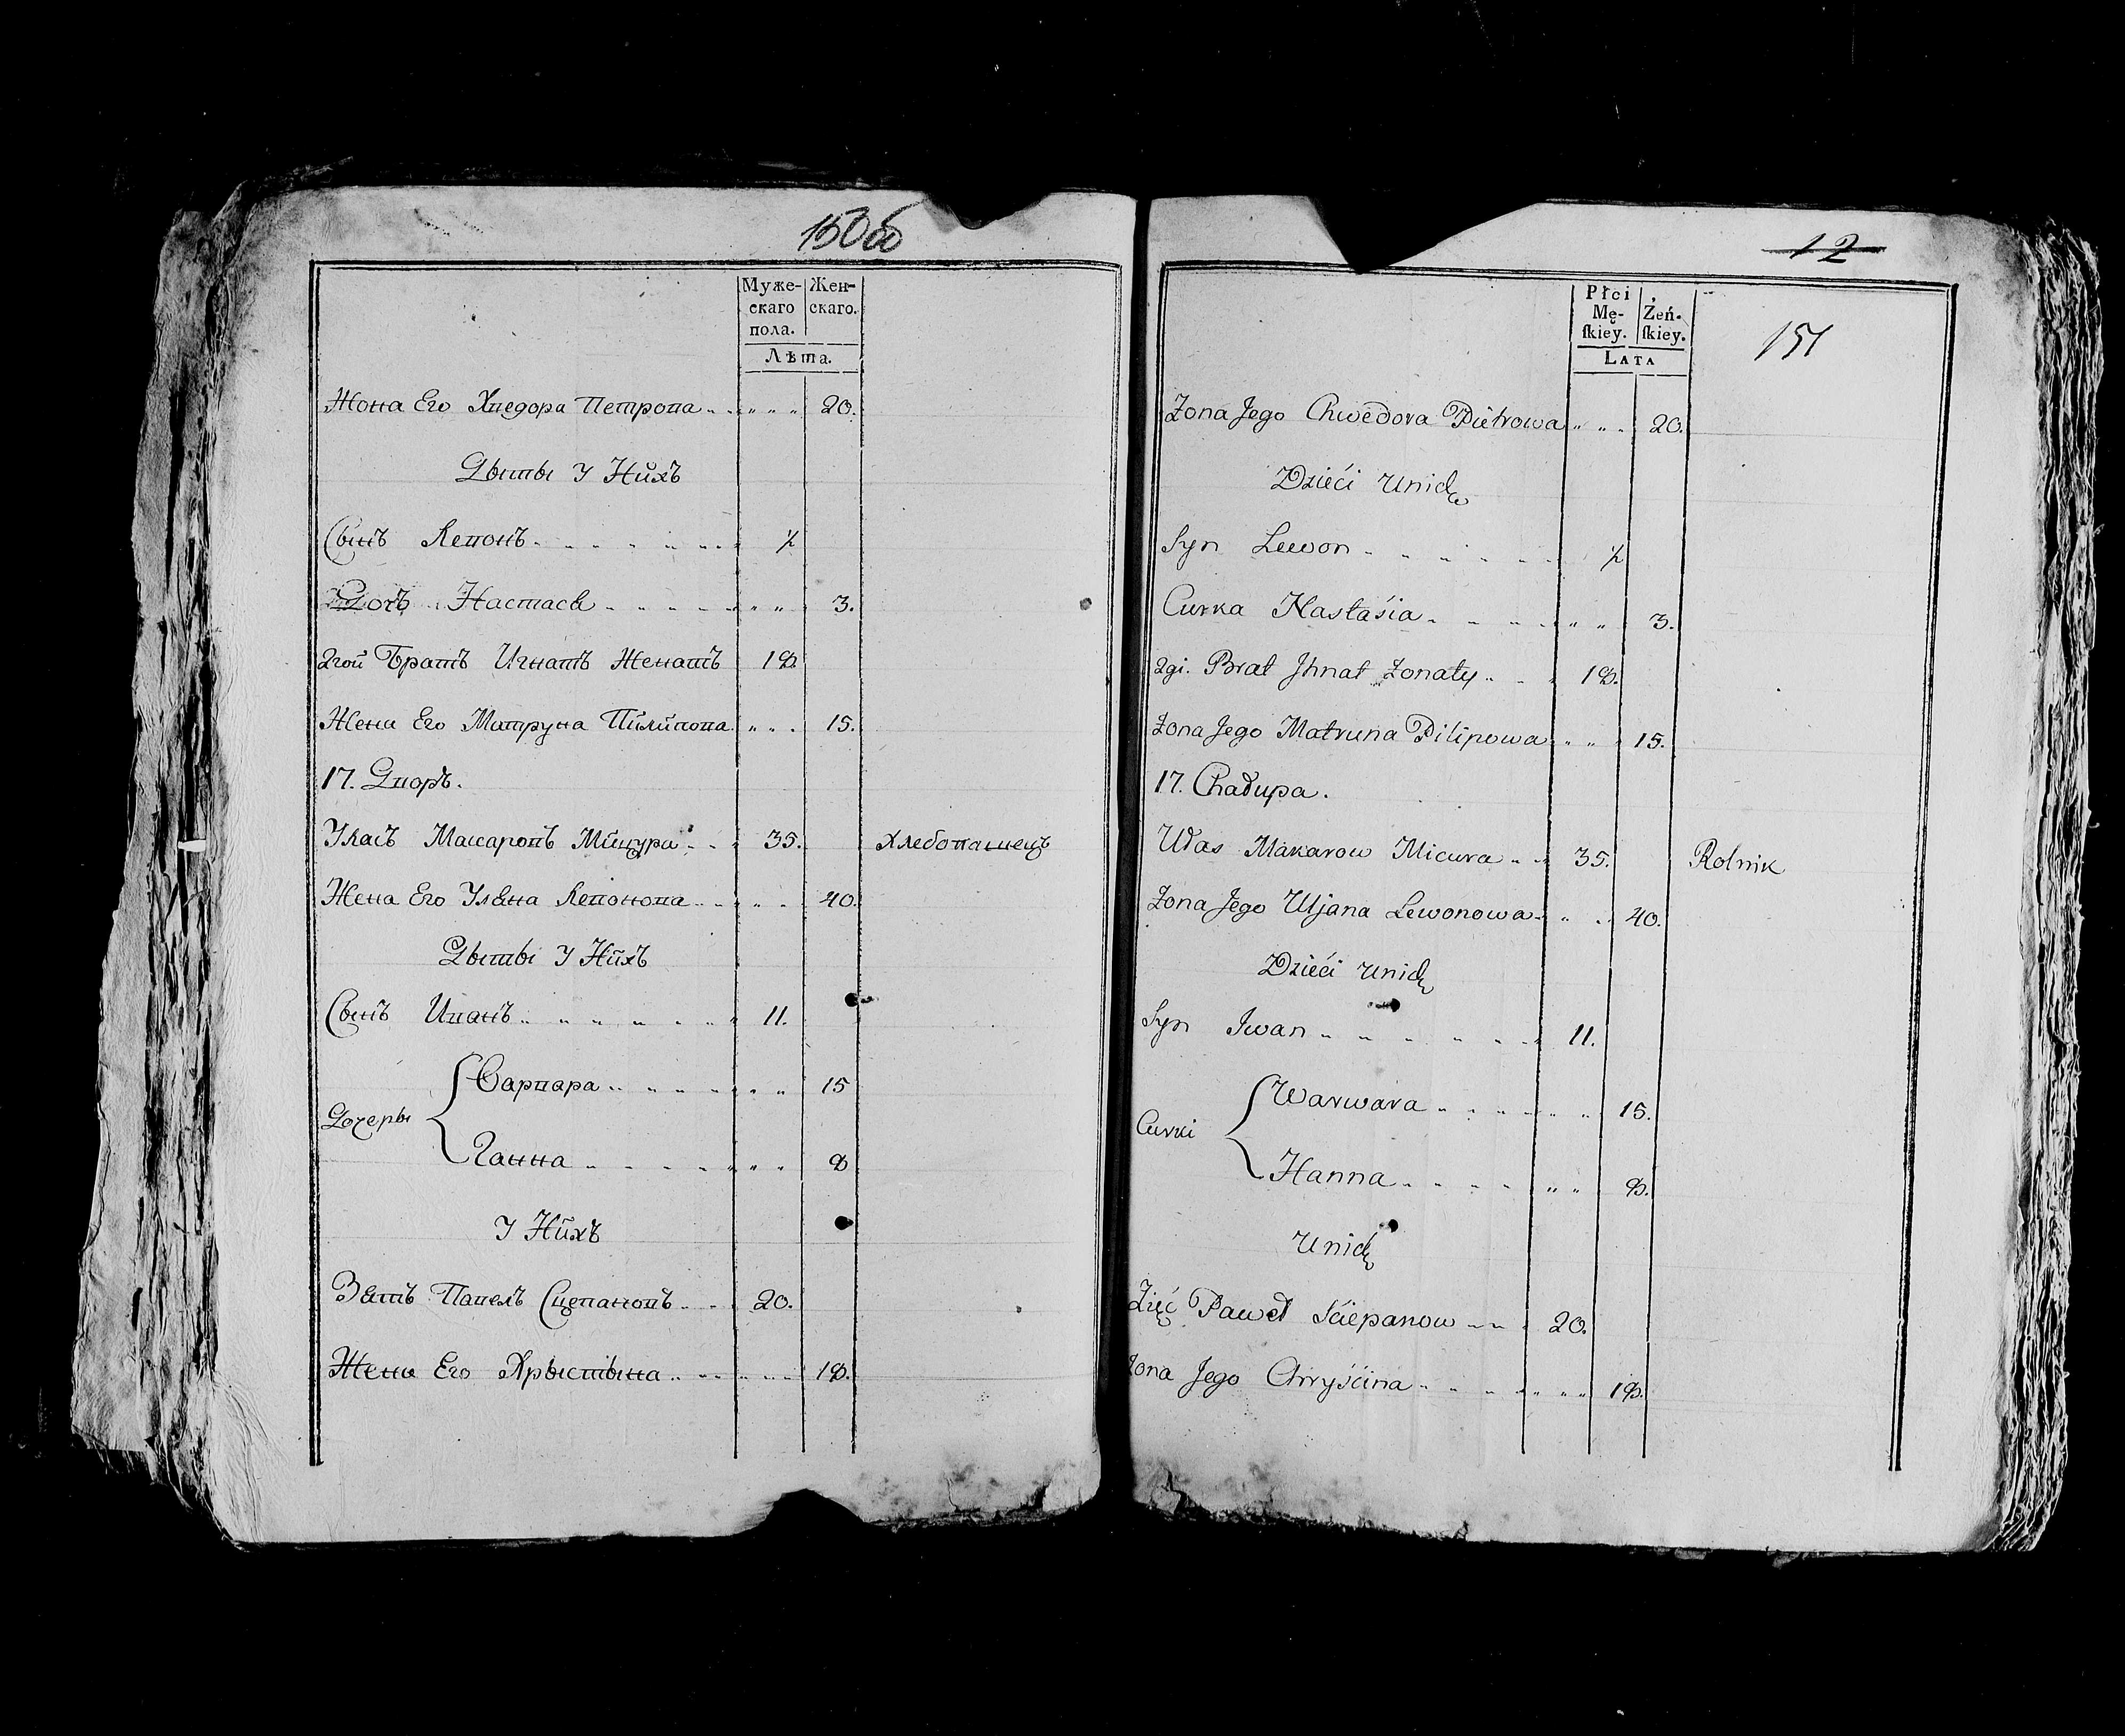 150об
Муже- Жен-
скаго скаго.
пола.
Лѣта.
Жона Его Хведора Петрова 20.
Дыты У Нихъ
Сынъ Левонъ ½
Дочъ Настася 3.
2гой Братъ Игнатъ Женатъ 18
Жена Его Матруна Пилипова 15.
17. Дворъ.
Уласъ Макаровъ Мицура 35. Хлебопашецъ
Жена Его Уляна Левонова 40.
Дыты У Нихъ
Сынъ Иванъ 11.
Варвара 15
Дочеры
Ганна 8
У Нихъ
Зять Павелъ Сцепановъ 20.
Жена Его Хрыстына 18.
12
151
Płci Żeń-
Mę- ſkiey.
ſkiey.
LATA
Żona Jego Chwedora Piétrowa 20.
Dzieći unich
Syn Lewon ½
Curka Nastaśia 3.
2gi. Brat Jhnat żonaty 18.
Żona Jego Matruna Pilipowa 15.
17. Chałupa.
Ułas Makarow Micura 35. Rolnik
Żona Jego Uljana Lewonowa 40.
Dzieći unich
Syn Jwan 11.
Warwara 15.
Curki
Hanna 8.
unich
Zięć Paweł Sćiepanow 20.
Żona Jego Chryśćina 18.